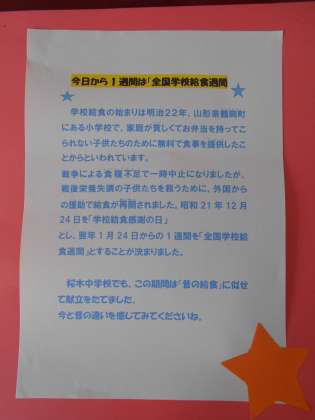 今日から１週間は「全国学校給食週間
学校給食の始まりは明治２２年、山形県鶴岡町
にある小学校で、家庭が貧しくてお弁当を持ってこ
られない子供たちのために無料で食事を提供したこ
とからといわれています。
戦争による食糧不足で一時中止になりましたが、
戦後栄養失調の子供たちを救うために、外国から
の援助で給食が再開されました。昭和 21 年 12 月
24 日を「学校給食感謝の日」
とし、翌年 1 月 24 日からの 1 週間を「全国学校給
食週間」とすることが決まりました。
桜木中学校でも、この期間は「昔の給食」に似せ
て献立をたてました。
今と昔の違いを感じてみてくださいね。